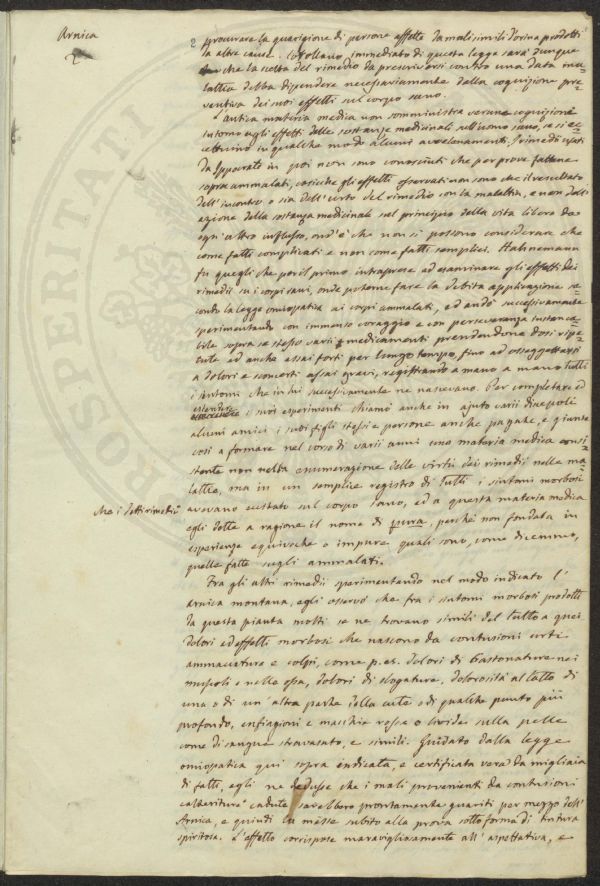 Arnica
2
2 procurare la guarigione di persone affette da mali simili d'origine prodotti
da altre cause. Corollario immediato di questa legge sarà dunque
che la scelta del rimedio da prescriversi contro una data ma-
lattia debba dipendere necessariamente dalla cognizione pre-
ventiva dei suoi effetti sul corpo sano.
antica materia medica non somministra veruna cognizione
intorno agli effetti delle sostanze medicinali sull'uomo sano, se si ec-
cettuino in qualche modo alcuni avvelenamenti. I rimedii usati
da Ippocrate in poi non sono conosciuti che per prove fattene
sopra ammalati, cosicché gli effetti osservati non sono che il resultato
dell'incontro o sia dell'urto del rimedio con la malattia, e non dell'
azione della sostanza medicinale sul principio della vita libero da
ogni altro influsso, ond'è che non si possono considerare che
come fatti complicati e non come fatti semplici. Hahnemann
fu quegli che per il primo intraprese ad esaminare gli effetti dei
rimedii su i corpi sani, onde poterne fare la debita applicazione se-
condo la legge omiopatica ai corpi ammalati, ed andò successivamente
sperimentando con immenso coraggio e con perseveranza instanca-
bile sopra se stesso varii medicamenti prendendone dosi ripe-
tute ed anche assai forti per lungo tempo, fino ad assoggettarsi
a dolori e sconcerti assai gravi, registrando a mano a mano tutti
i sintomi che in lui successivamente ne nascevano. Per completare ed
estendere i suoi esperimenti chiamò anche in ajuto varii discepoli
alcuni amici i suoi figli stessi e persone anche pagate, e giunse
così a formare nel corso di varii anni una materia medica consi-
stente non nella enumerazione delle virtù dei rimedii nelle ma-
lattie, ma in un semplice registro di tutti i sintomi morbosi
che i detti rimedii
avevano eccitato sul corpo sano, ed a questa materia medica
egli dette a ragione il nome di pura, perché non fondata in
esperienze equivoche o impure quali sono, come dicemmo,
quelle fatte sugli ammalati.
Fra gli altri rimedii sperimentando nel modo indicato l'
arnica montana, egli osservò che fra i sintomi morbosi prodotti
da questa pianta molti se ne trovano simili del tutto a quei
dolori ed effetti morbosi che nascono da contusioni urti
ammaccature e colpi, come p. es. dolori di bastonature nei
muscoli e nelle ossa, dolori di slogature, dolorosità al tatto di
una o di un' altra parte della cute o di qualche punto più
profondo, enfiagioni e macchie rosse o livide sulla pelle
come di sangue stravasato, e simili. Guidato dalla legge
omiopatica qui sopra indicata, e certificata vera da migliaia
di fatti, egli ne dedusse che i mali provenienti da contusioni
cadute sarebbero prontamente guariti per mezzo dell'
Arnica, e quindi la messe subito alla prova sotto forma di tintura
spiritosa. L'effetto corrispose maravigliosamente all' aspettativa, e